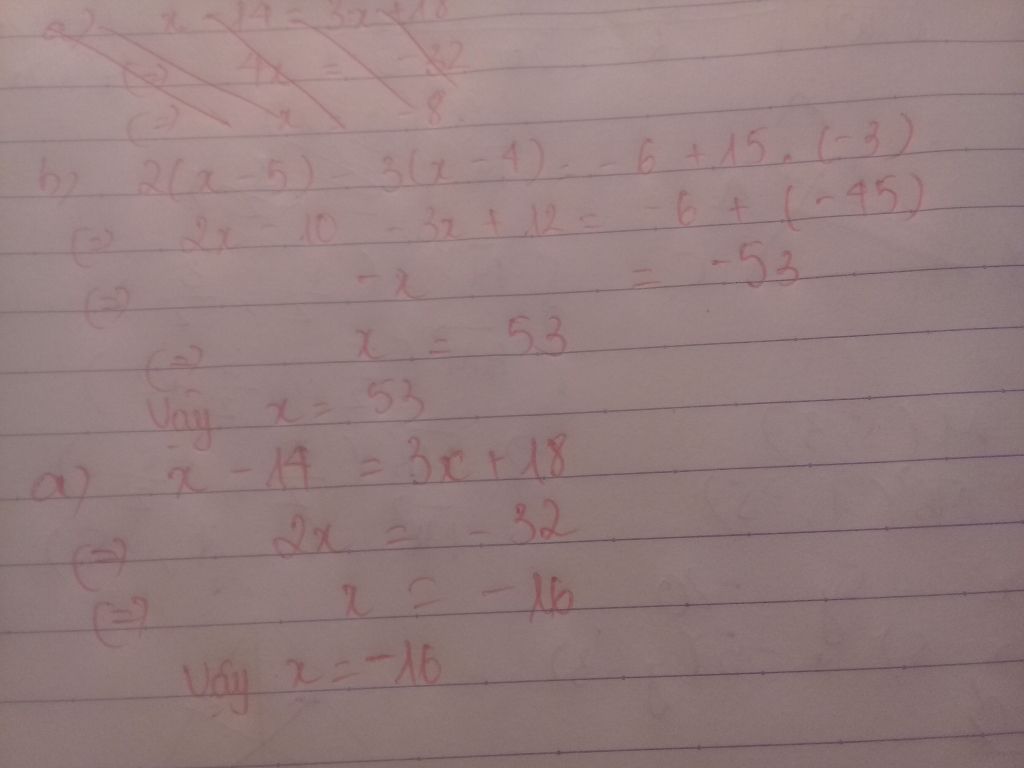 a) x - 14 = 3x + 18
(=) 4x = - 32
(=) x - 8
b) 2(x - 5) - 3(x - 4) = - 6 + 15 . (- 3)
(=) 2x - 10 - 3x + 12 = - 6 + (- 45)
(=) - x = - 53
(=) x = 53
Vậy x = 53
a) x - 14 = 3x + 18
(=) 2x = - 32
(=) x = - 16
Vậy x = - 16